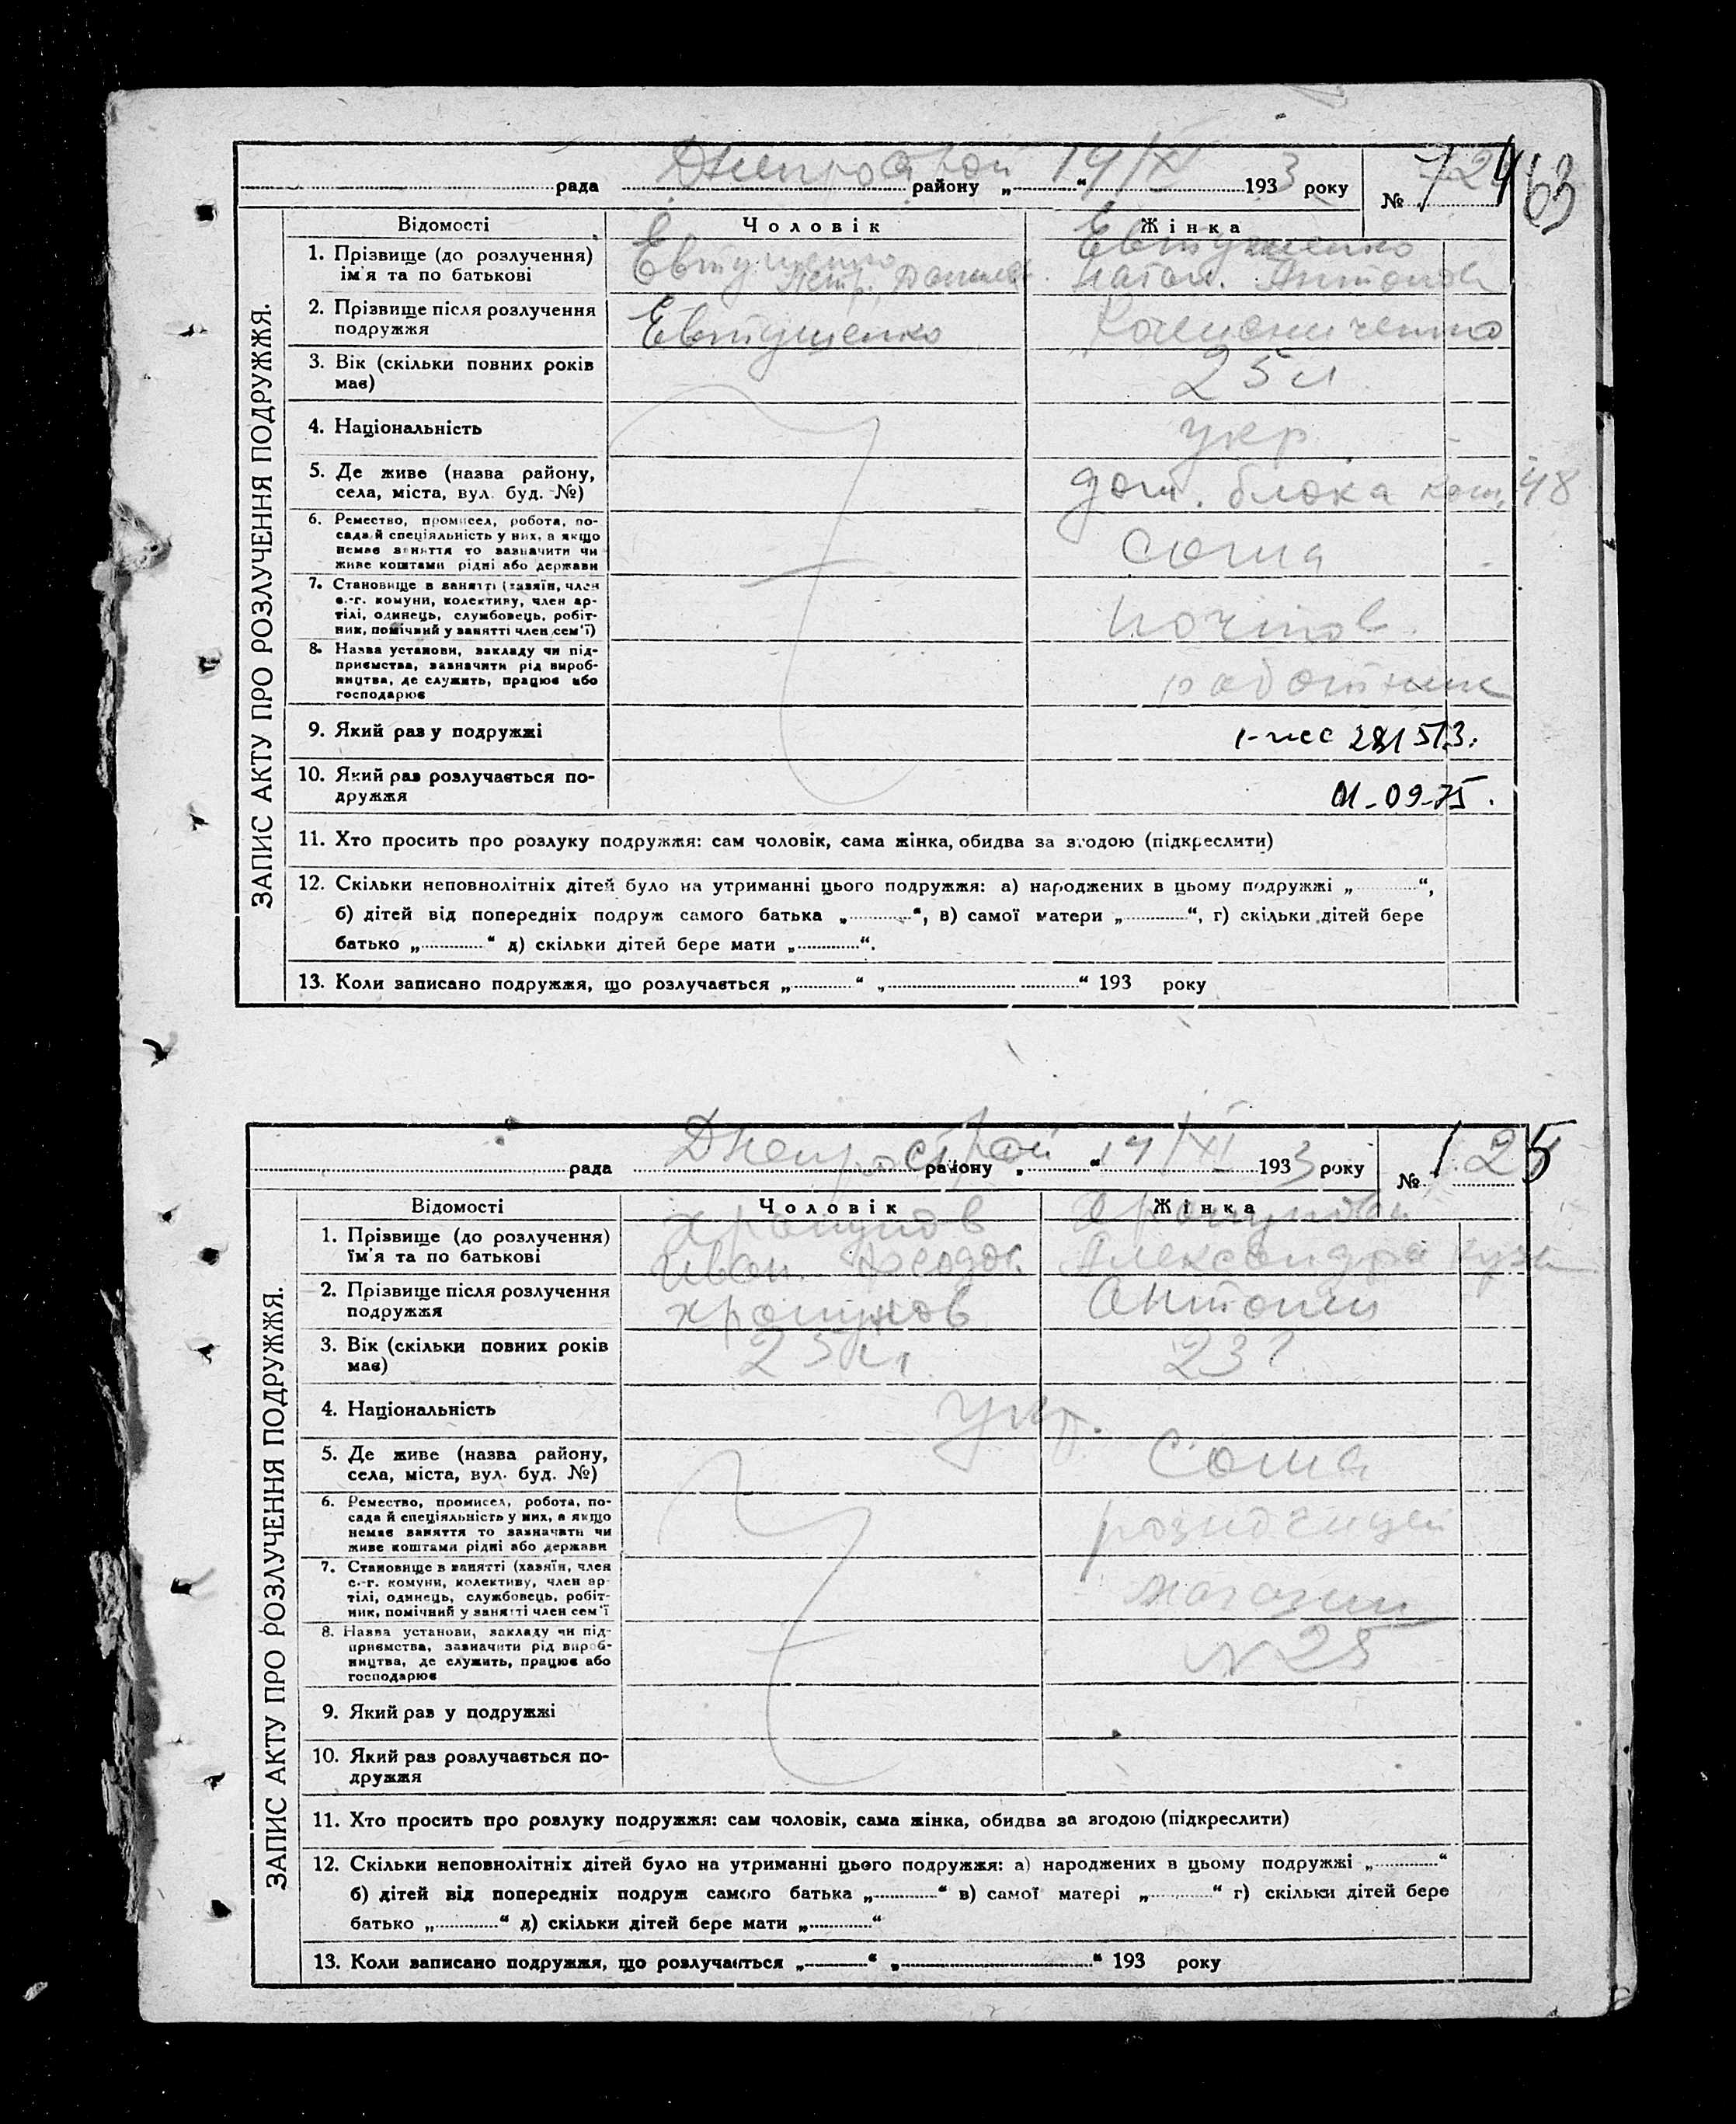 Днепрострой 14/XI 3 124
рада району „ “ 193 року №
63
Відомості Чоловік Жінка
ЗАПИС АКТУ ПРО РОЗЛУЧЕННЯ ПОДРУЖЖЯ.
1. Прізвище (до розлучення)
ім'я та по батькові
Евтушенко
Петр. Данил
Евтушенко
Натал. Антонов
2. Прізвище після розлучення
подружжя
Евтушенко
3. Вік (скільки повних років
має)
25 л
4. Національність
укр
5. Де живе (назва району,
села, міста, вул. буд. №)
дом. блока ком. 48
6. Ремество, промисел, робота, по-
сада й спеціяльність у них, а якщо
немає заняття то зазначити чи
живе коштами рідні або держави
Соша
7. Становище в занятті (хазяїн, член
с.-г. комуни, колективу, член ар-
тілі, одинець, службовець, робіт-
ник, помічний у занятті член сем'ї)
почтов.
8. Назва установи, закладу чи під-
приємства, зазначити рід вироб-
ництва, де служить, працює або
господарює
работник
9. Який раз у подружжі
10. Який раз розлучається по-
дружжя
01-09-75.
11. Хто просить про розлуку подружжя: сам чоловік, сама жінка, обидва за згодою (підкреслити)
12. Скільки неповнолітніх дітей було на утриманні цього подружжя: а) народжених в цьому подружжі „ “,
б) дітей від попередніх подруж самого батька „ “, в) самої матери „ “, г) скільки дітей бере
батько „ “ д) скільки дітей бере мати „ “.
13. Коли записано подружжя, що розлучається „ “ „ “ 193 року
Днепрострой 14/XI 3 125
рада району „ “ 193 року №
Відомості Чоловік Жінка
ЗАПИС АКТУ ПРО РОЗЛУЧЕННЯ ПОДРУЖЖЯ.
1. Прізвище (до розлучення)
їм'я та по батькові
Иван. Феодос
Александра Кузм
2. Прізвище після розлучення
подружжя
3. Вік (скільки повних років
має)
25 л 23 г
4. Національність
укр.
5. Де живе (назва району,
села, міста, вул. буд. №)
Соша
6. Ремество, промисел, робота, по-
сада й спеціяльність у них, а якщо
немає заняття то зазначати чи
живе коштами рідні або держави
7. Становище в занятті (хазяїн, член
с.-г. комуни, колективу, член ар-
тілі, одинець, службовець, робіт-
ник, помічний у занятті член сем'ї
магазин
8. Назва установи, закладу чи під-
приємства, зазначити рід вироб-
ництва, де служить, працює або
господарює
N 25
9. Який раз у подружжі
10. Який раз розлучається по-
дружжя
11. Хто просить про розлуку подружжя: сам чоловік, сама жінка, обидва за згодою (підкреслити)
12. Скільки неповнолітніх дітей було на утриманні цього подружжя: а) народжених в цьому подружжі „ “
б) дітей від попередніх подруж самого батька „ “ в) самої матері „ “ г) скільки дітей бере
батько „ “ д) скільки дітей бере мати „ “
13. Коли записано подружжя, що розлучається „ “ „ “ 193 року